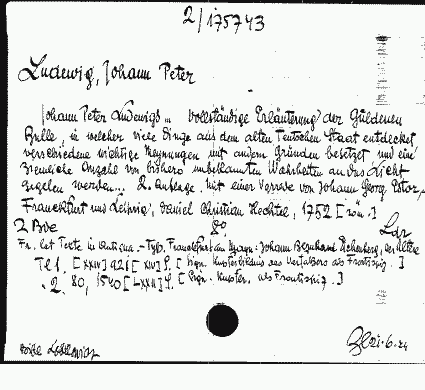 2/175743
Ludewig, Johann Peter
Johann Peter Ludewigs ... vollständige Erläuterung der Güldenen
Bulle, in welcher viele Dinge aus dem alten Teutschen Staat entdecket,
verschiedene wichtige Meynungen mit andern Gründen besetzet und eine
ziemliche Anzahl von bishero unbekannten Wahrheiten an das Licht
gegeben werden... 2. Auflage. Mit einer Vorrede von Johann Georg Estor,
Franckfurt und Leipzig, Daniel Christian Hechtel, 1752 [röm.]
2 Bde 8o.
Fr. let Texte in Antiqua - Typ. Franckfurt am Mayn: Johann Bernhard Eichenberg, der
Tl 1. [XXIV] 921 [XIV] S. [Sign. Kupferbildnis des Verfassers als Frontispiz.]
2. 80, 1540 [LXXII] S. [Sign. Kupfer. als Frontispiz.]
21.6.24